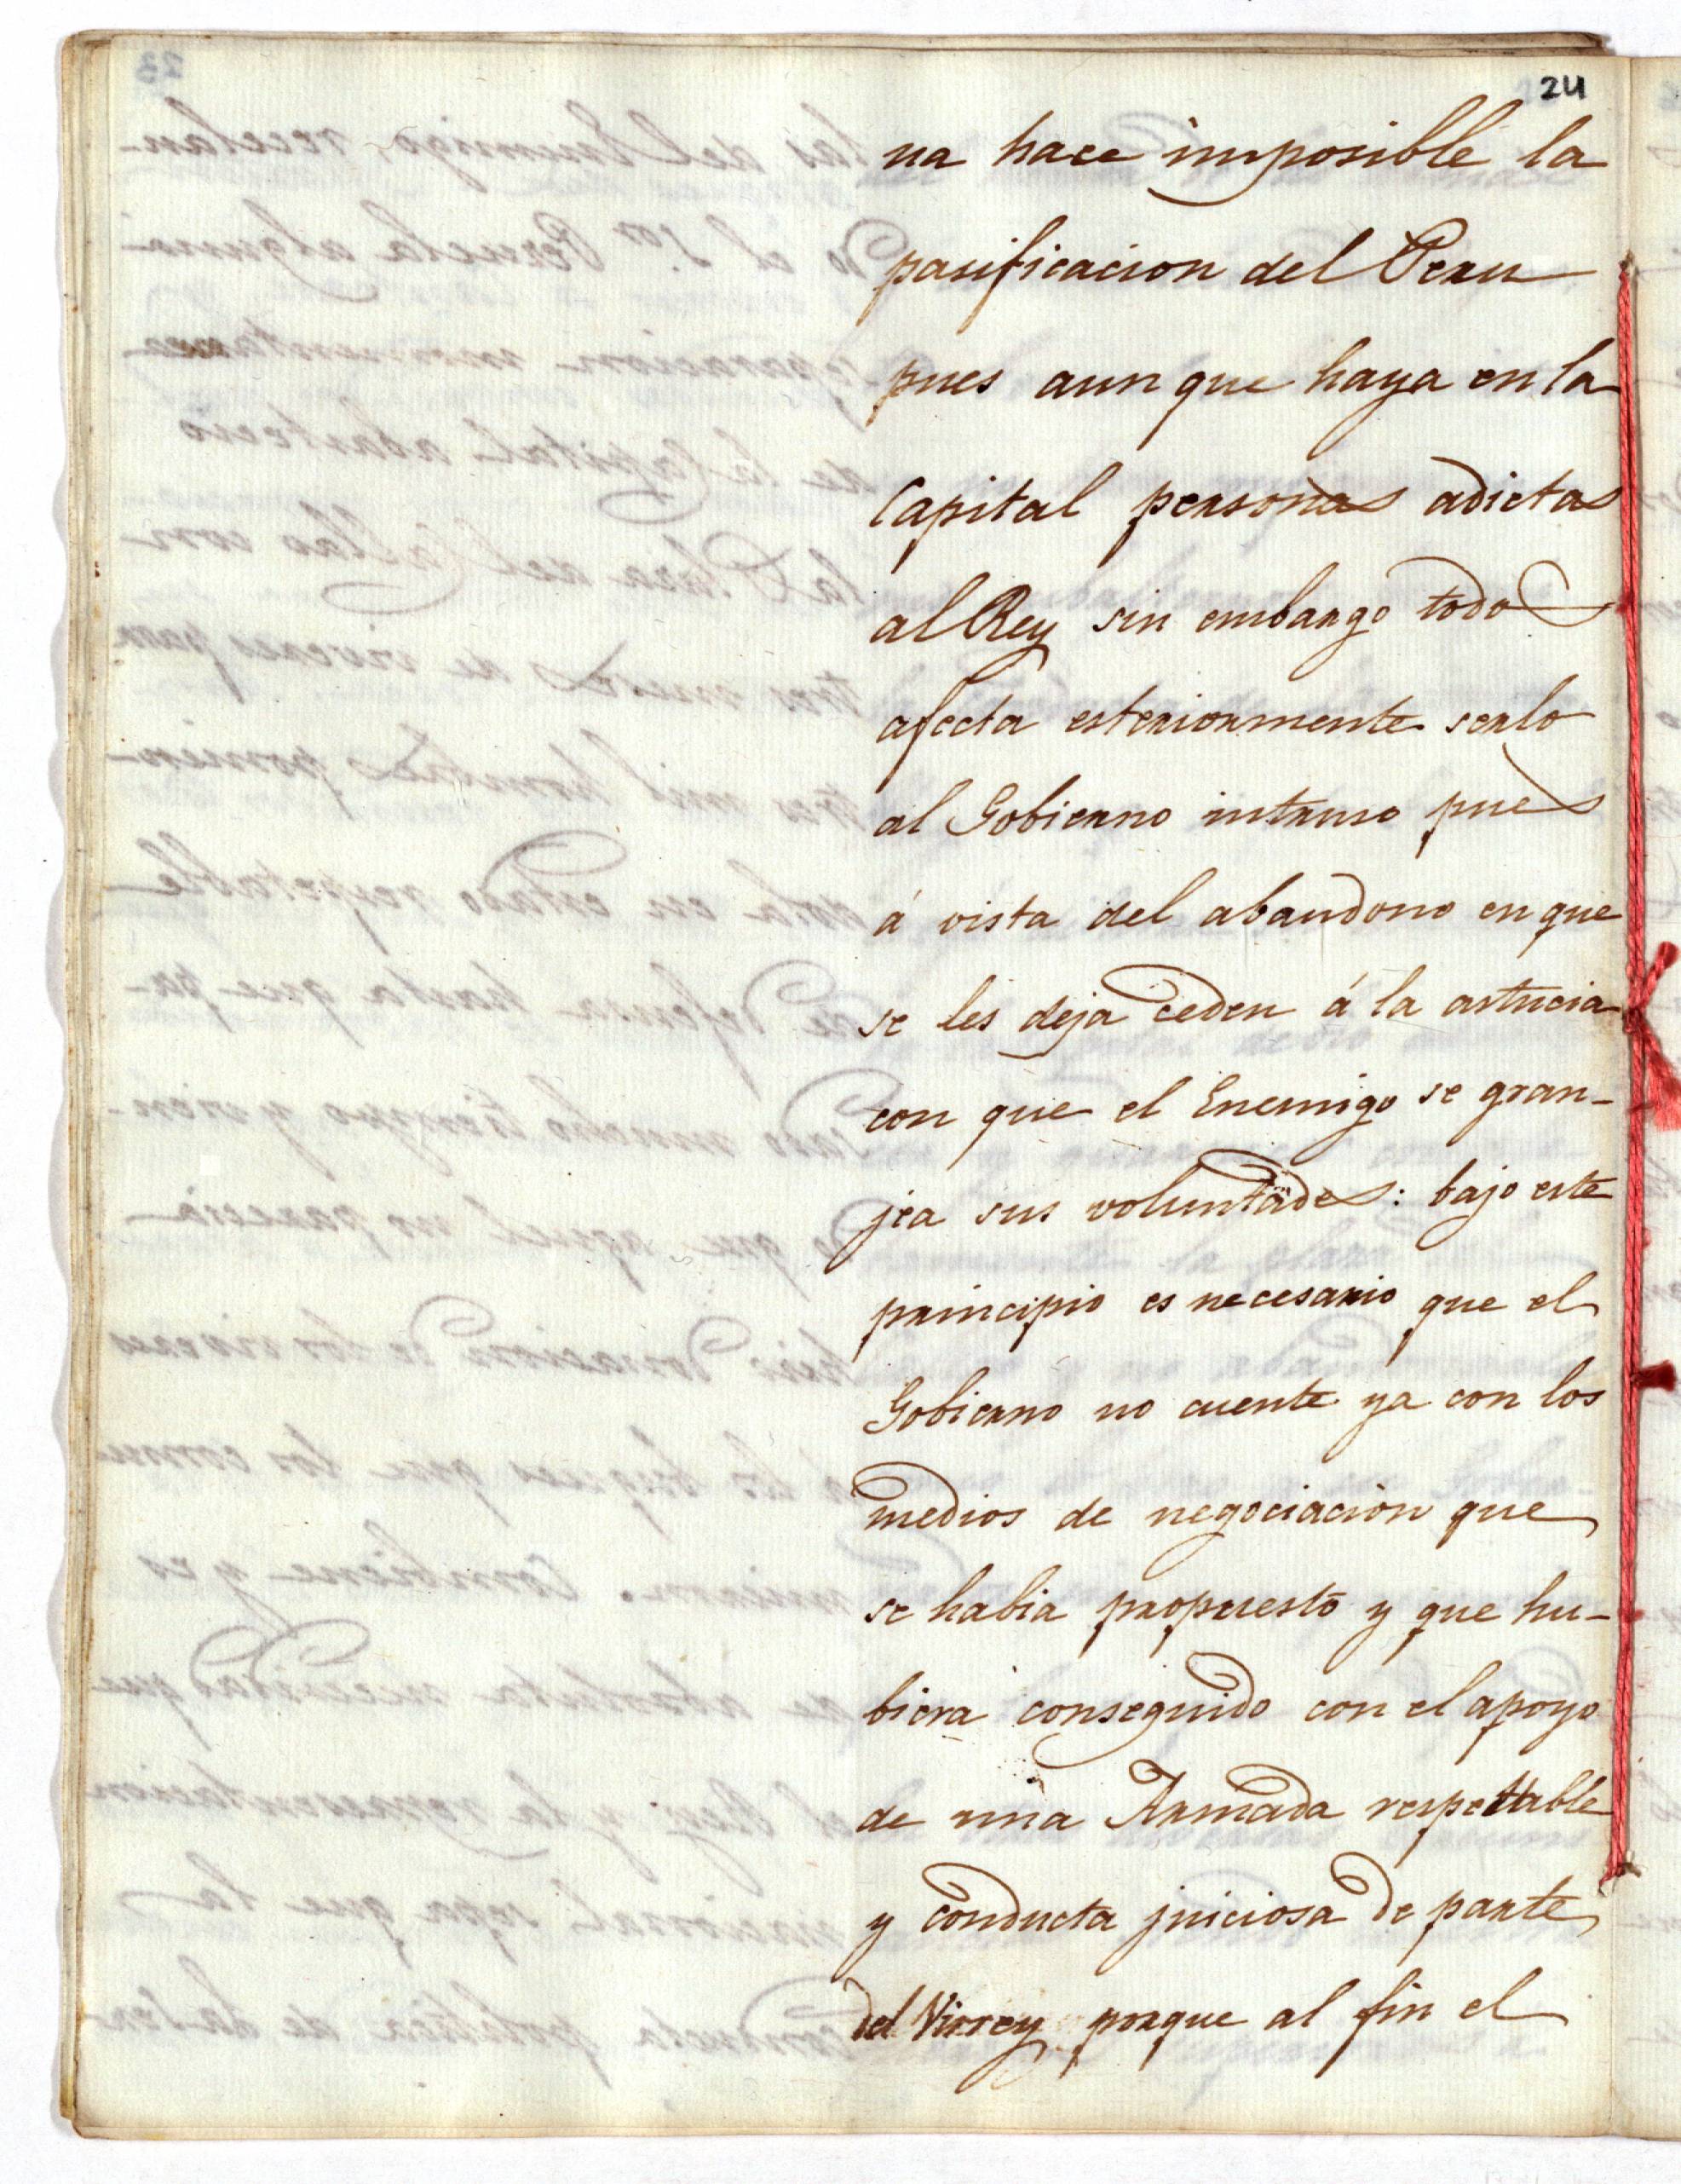 24
na hace imposible la
pasificacion del Peru
pues aun que haya en la
Capital personas adictas
al Rey sin embargo todos
afecta esteriormente serlo
al Gobierno intruso pues
á vista del abandono en que
se les deja ceden á la astucia
con que el Enemigo se gran-
jea sus voluntades: bajo este
principio es necesario que el
Gobierno no cuente ya con los
medios de negociacion que
se habia propuesto y que hu-
biera conseguido con el apoyo
de una Armada respettable
y conducta juiciosa de parte
del Virrey porque al fin el